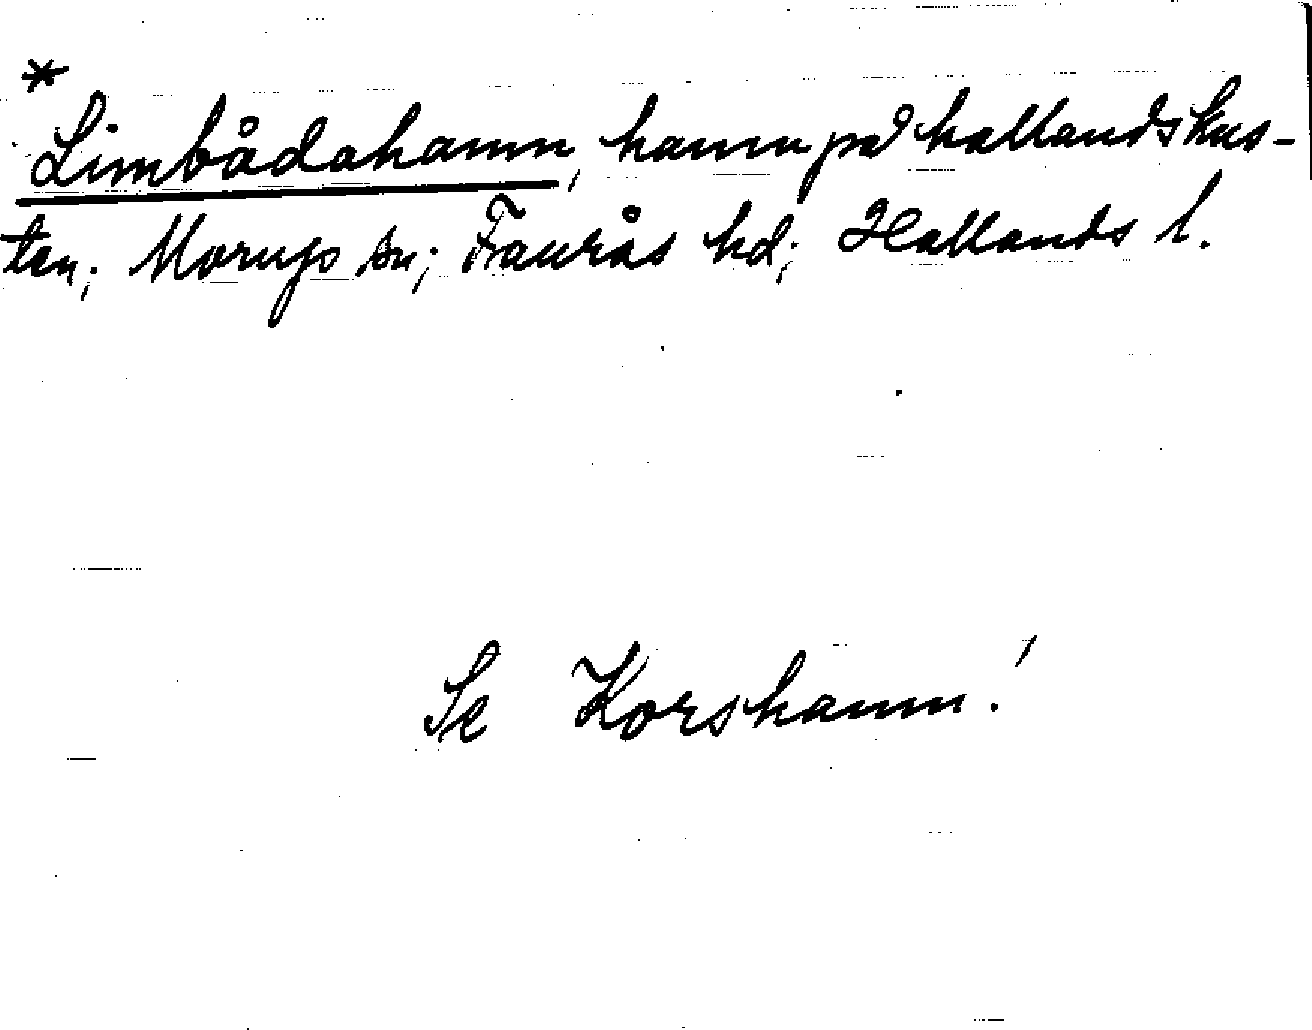 *
Limbådahamn, hamn på hallandskus-
ten; Morups sn; Faurås hd; Hallands l.
Se Korshamn!